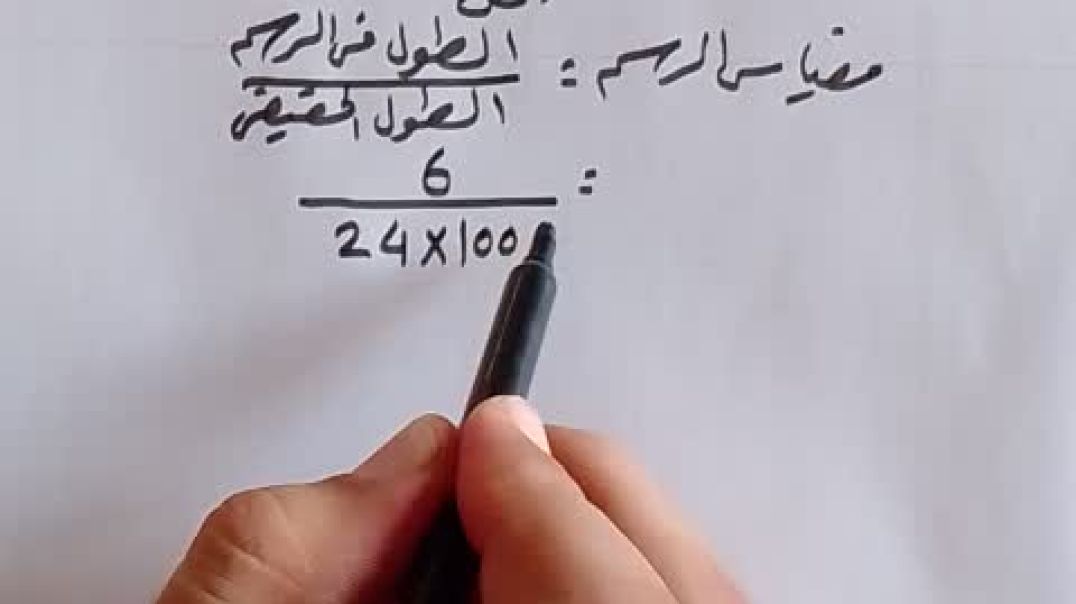 مقياس الرسم = الطول في الرسم
الطول الحقيقي
= 6
24 × 100